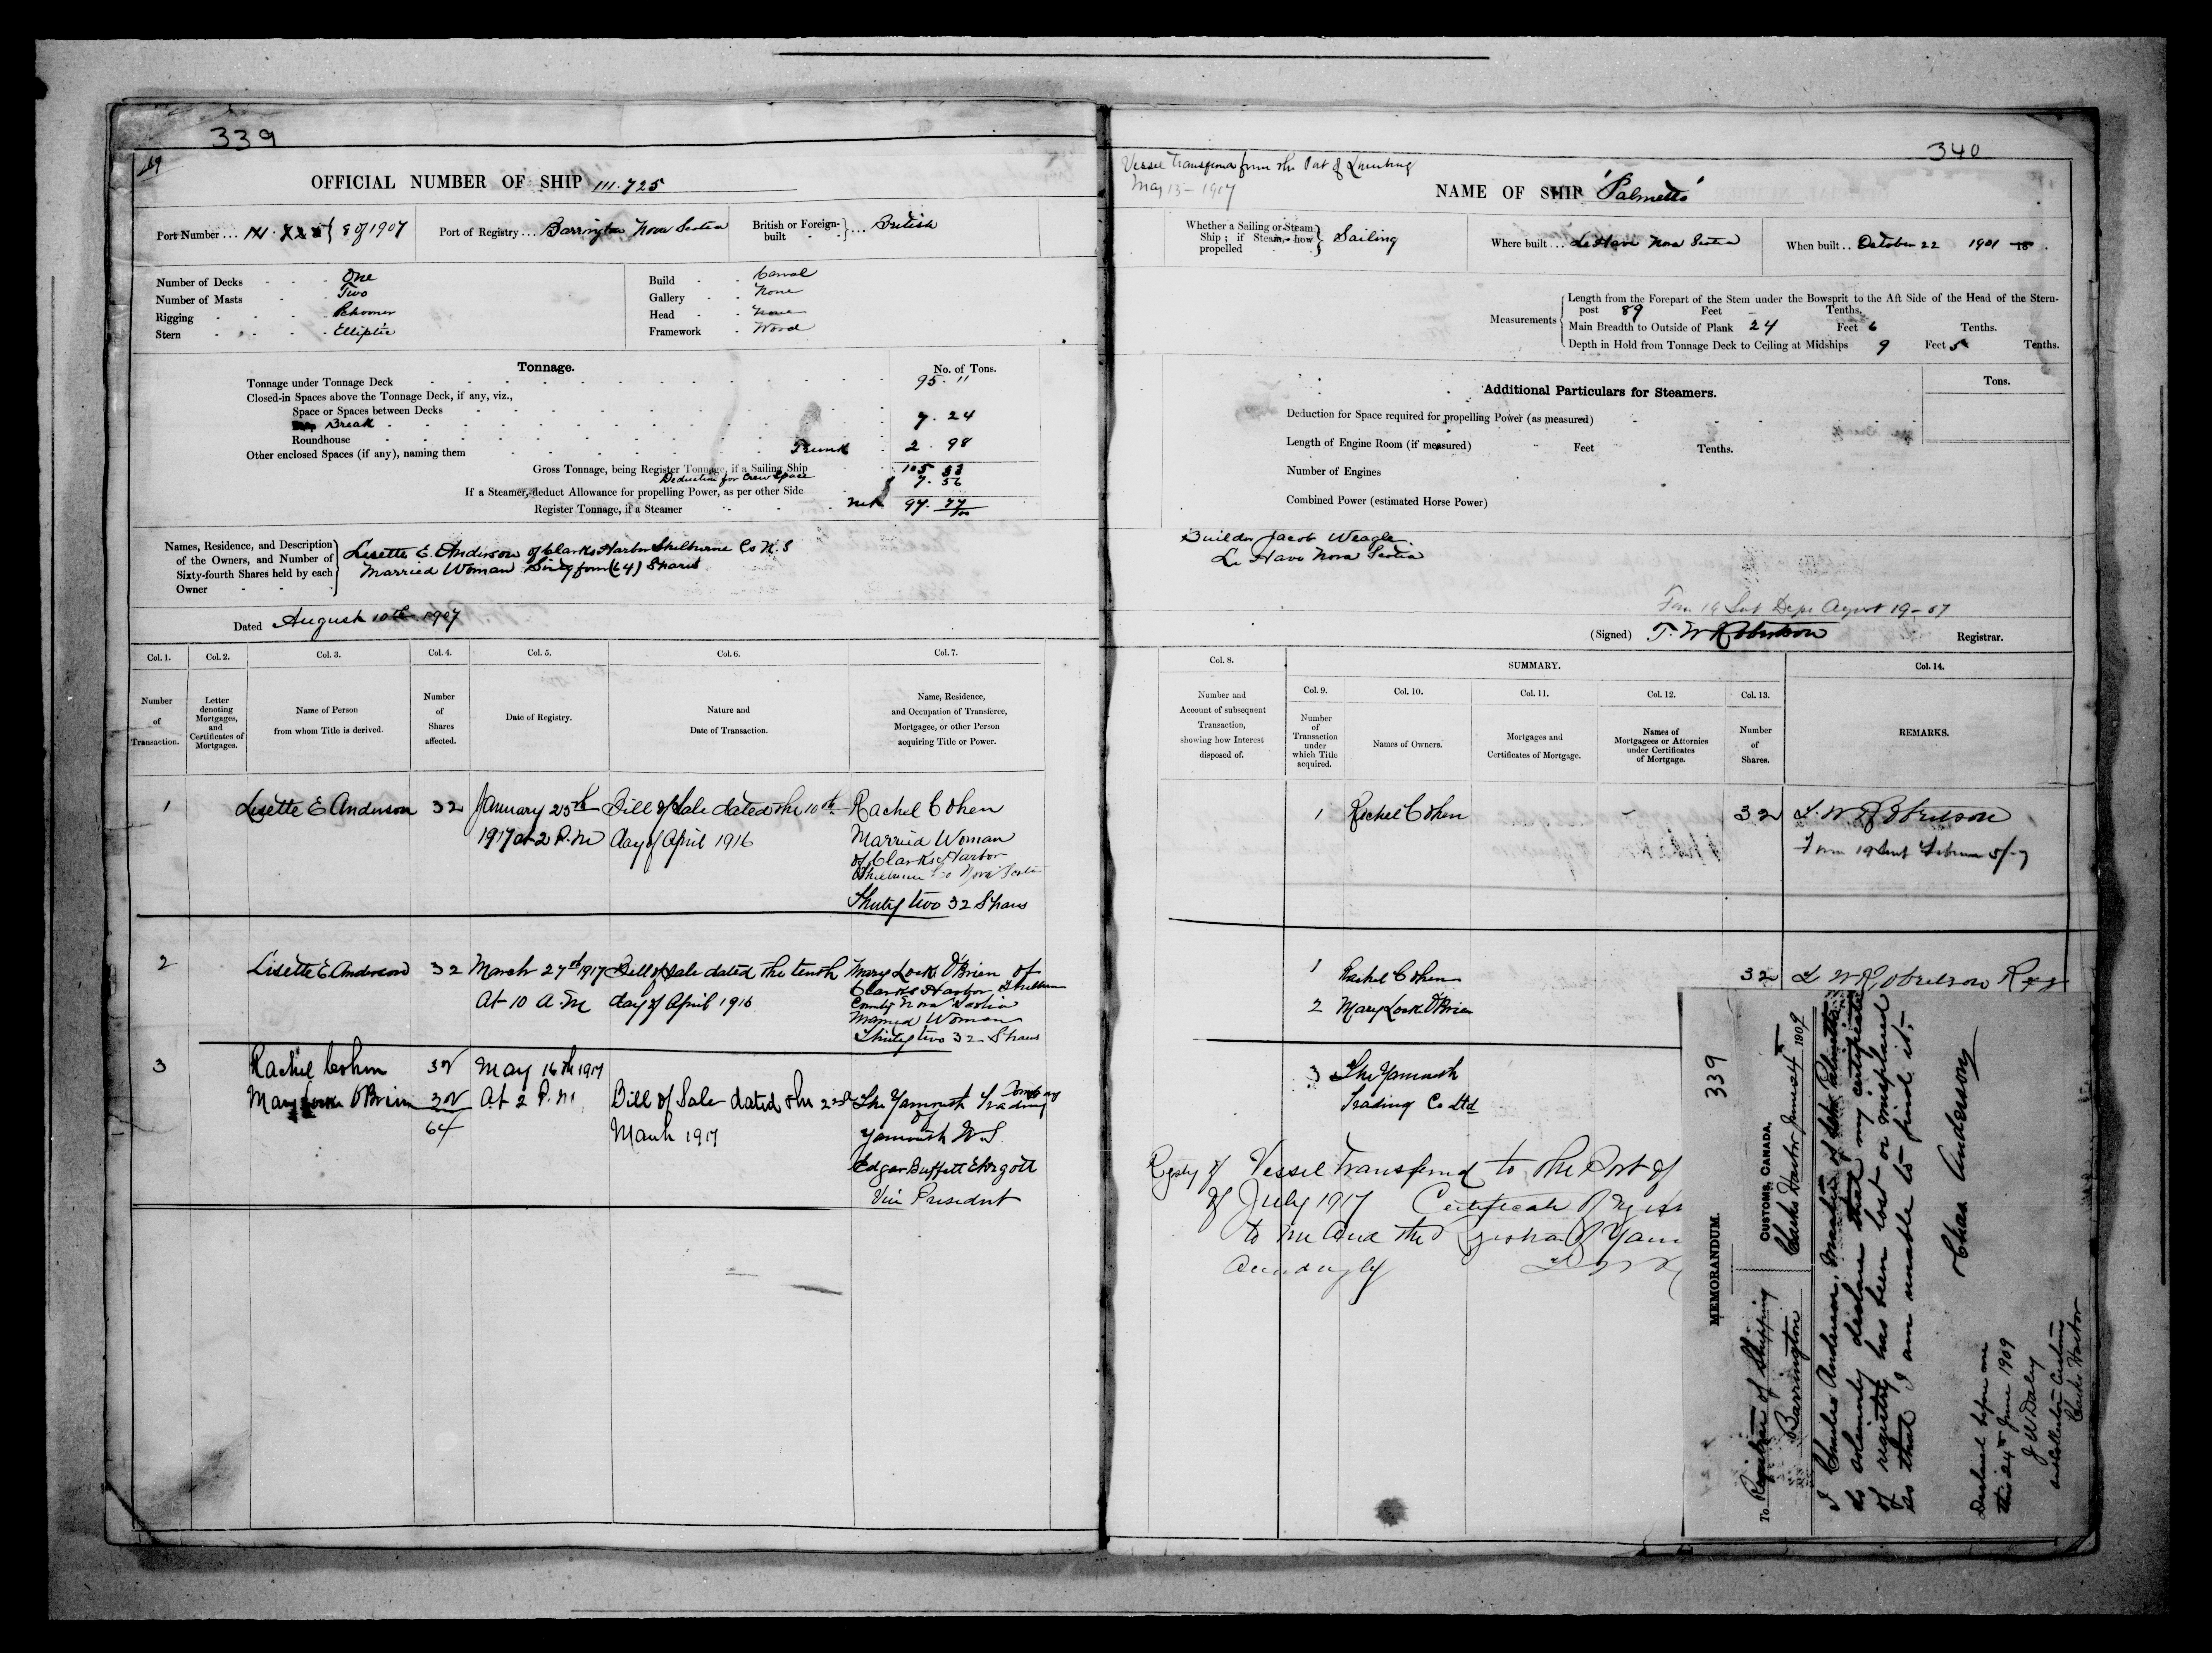 339
169
OFFICIAL NUMBER OF SHIP 111.725
Port Number ... 8 of 1907
Port of Registry ... Barrington Nova Scotia
British or Foreign-built ... British
Number of Decks - - - One
Number of Masts - - Two
Rigging - - - - Schooner
Stern - - - - Elliptic
Build - - Carvel
Gallery - - None
Head - - None
Framework - Wood
Tonnage.
No. of Tons.
Tonnage under Tonnage Deck 95. "
Closed-in Spaces above the Tonnage Deck, if any, viz.,
Space or Spaces between Decks
Break 7. 24
Roundhouse
Other enclosed Spaces (if any), naming them Trunk 2. 98
Gross Tonnage, being Register Tonnage, if a Sailing Ship 105 33
Deduction for Crew Space 7. 56
If a Steamer, deduct Allowance for propelling Power, as per other Side
Register Tonnage, if a Steamer Net 97. 77/100
Names, Residence, and Description of the Owners, and Number of Sixty-fourth Shares held by each Owner
Lisette E. Anderson of Clarks Harbor Shelburne Co N.S
Married Woman Sixty four (64) Shares
Dated August 10th 1907
Col. 1. Col. 2. Col. 3. Col. 4. Col. 5. Col. 6. Col. 7.
Number of Transaction.
Letter denoting Mortgages, and Certificates of Mortgages.
Name of Person from whom Title is derived.
Number of Shares affected.
Date of Registry.
Nature and Date of Transaction.
Name, Residence, and Occupation of Transferee, Mortgagee, or other Person acquiring Title or Power.
1 Lisette E Anderson 32 January 25th 1917 at 2 P.M Bill of Sale dated the 10th day of April 1916
Rachel Cohen
Married Woman
of Clarks Harbor
Shelburne Co Nova Scotia
Thirty two 32 Shares
2 Lisette E Anderson 32 March 27th 1917 At 10 A.M Bill of Sale dated the tenth day of April 1916
Mary Locke O'Brien of
Clarks Harbor Shelburne
County Nova Scotia
Married Woman
Thirty two 32 Shares
3 Rachel Cohen 32 May 16th 1917
Mary Locke O'Brien 32 At 2 P.M.
64
Bill of Sale dated the 2nd
March 1917
The Yarmouth Trading Company
of
Yarmouth N.S.
Edgar Buffett Elergott
Vice President
340
Vessel transferred from the Port of Lunenburg
May 13 - 1907
NAME OF SHIP 'Palmetto'
Whether a Sailing or Steam Ship; if Steam, how propelled Sailing
Where built ... LeHave Nova Scotia
When built .. October 22 1901 18 .
Measurements
Length from the Forepart of the Stem under the Bowsprit to the Aft Side of the Head of the Stern-
post 89 Feet - Tenths,
Main Breadth to Outside of Plank 24 Feet 6 Tenths.
Depth in Hold from Tonnage Deck to Ceiling at Midships 9 Feet 5 Tenths.
Additional Particulars for Steamers.
Tons.
Deduction for Space required for propelling Power (as measured)
Length of Engine Room (if measured) Feet Tenths.
Number of Engines
Combined Power (estimated Horse Power)
Builder Jacob Weagle.
Le Have Nova Scotia
Form 19 Sent Dept August 19-07
(Signed) T. W Robertson Registrar.
Col. 8. SUMMARY. Col. 14.
Col. 9. Col. 10. Col. 11. Col. 12. Col. 13.
Number and Account of subsequent Transaction, showing how Interest disposed of.
Number of Transaction under which Title acquired.
Names of Owners.
Mortgages and Certificates of Mortgage.
Names of Mortgagees or Attornies under Certificates of Mortgage.
Number of Shares.
REMARKS.
1 Rachel Cohen 32 T. W. Robertson
Form 19 Sent
1 Rachel Cohen 32 T W Robertson Reg
2 Mary Locke O'Brien
3 The Yarmouth
Trading Co Ltd
Registry of Vessel transferred to the Port of
of July 1917 Certificate of
to me and the
accordingly
MEMORANDUM. 339
CUSTOMS, CANADA,
Clarks Harbor June 24 1909
To Registrar of Shipping
Barrington
I Charles Anderson, Master of Schr Palmetto
do solemnly declare that my certificate
of registry has been lost or misplaced
so that I am unable to find it.-
Chas Anderson
Declared before me
this 24th June 1909
J W Daley
Sub Collector Customs
Clarks Harbor